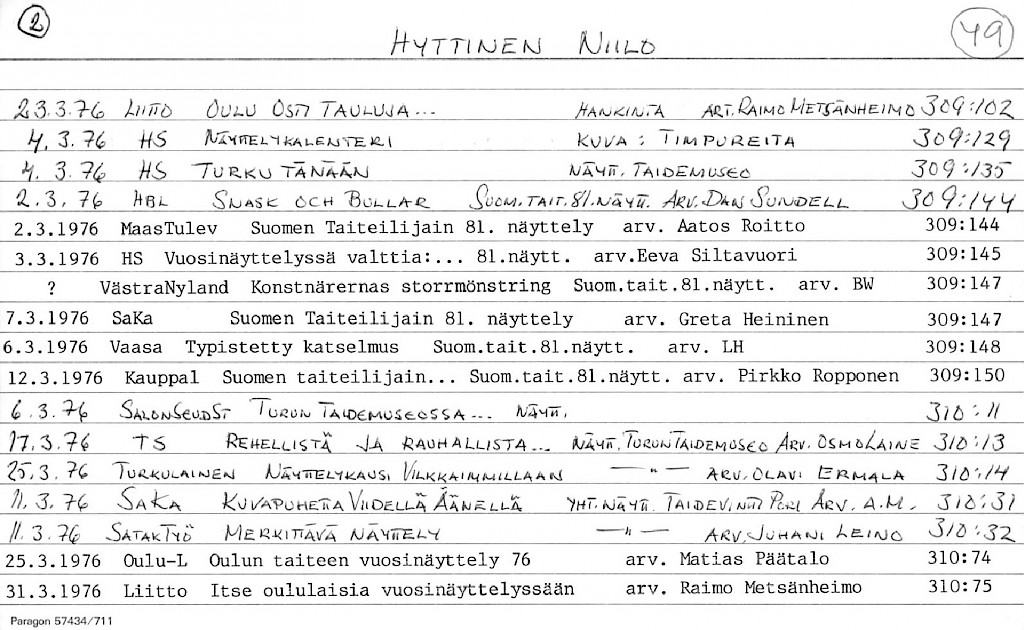 2
HYTTINEN NIILO
49
23.3.76 LIITTO OULU OSTI TAULUJA... HANKINTA ART.RAIMO METSÄNHEIMO 309:102
4.3.76 HS NÄYTTELYKALENTERI KUVA: TIMPUREITA 309:129
4.3.76 HS TURKU TÄNÄÄN NÄYTT. TAIDEMUSEO 309:135
2.3.76 HBL SNASK OCH BULLAR SUOM.TAIT.81.NÄYTT. ARV.DAN SUNDELL 309:144
2.3.1976 MaasTulev Suomen Taiteilijain 81. näyttely arv. Aatos Roitto 309:144
3.3.1976 HS Vuosinäyttelyssä valttia:... 81.näytt. arv.Eeva Siltavuori 309:145
? VästraNyland Konstnärernas storrmönstring Suom.tait.81.näytt. arv. BW 309:147
7.3.1976 SaKa Suomen Taiteilijain 81. näyttely arv. Greta Heininen 309:147
6.3.1976 Vaasa Typistetty katselmus Suom.tait.81.näytt. arv. LH 309:148
12.3.1976 Kauppal Suomen taiteilijain... Suom.tait.81.näytt. arv. Pirkko Ropponen 309:150
6.3.76 SALONSEUDST TURUN TAIDEMUSEOSSA... NÄYTT. 310:11
17.3.76 TS REHELLISTÄ JA RAUHALLISTA... NÄYTT. TURUN TAIDEMUSEO ARV. OSMO LAINE 310:13
25.3.76 TURKULAINEN NÄYTTELYKAUSI VILKKAIMMILLAAN —"— ARV.OLAVI ERMALA 310:14
11.3.76 SAKA KUVAPUHETTA VIIDELLÄ ÄÄNELLÄ YHT.NÄYTT. TAIDEV.INTTI PORI ARV. A.M. 310:31
11.3.76 SATAKTYÖ MERKITTÄVÄ NÄYTTELY —"— ARV.JUHANI LEINO 310:32
25.3.1976 Oulu-L Oulun taiteen vuosinäyttely 76 arv. Matias Päätalo 310:74
31.3.1976 Liitto Itse oululaisia vuosinäyttelyssään arv. Raimo Metsänheimo 310:75
Paragon 57434/711